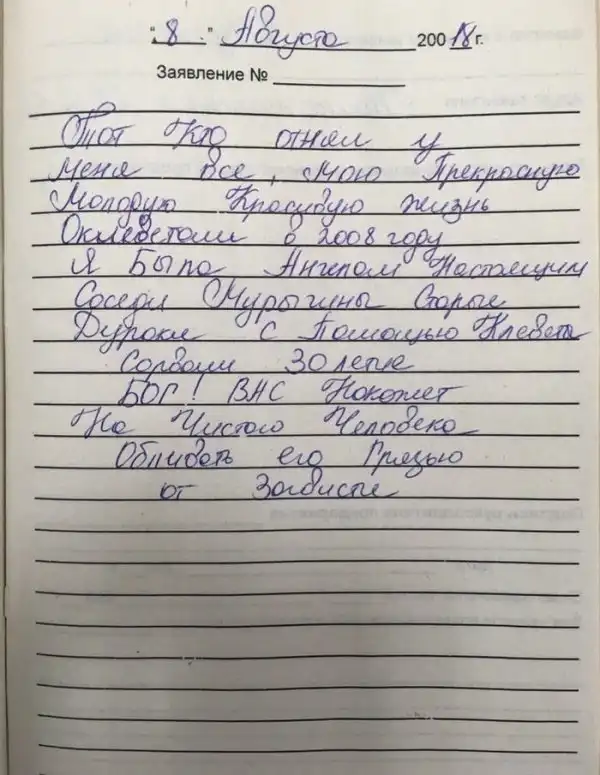 "8." Августа 200 18 г.
Заявление №
Тот Кто отнял у
меня все, мою Прекрасную
Молодую Красивую жизнь
Оклеветали в 2008 году
Я Была Ангелом Настоящим
Соседи Мурыгины Старые
Дураки с Помощью Клевета
Сорвали 30 летие
БОГ! ВАС Накажет
На Чистого Человека
Обливать его Грязью
от Зависти